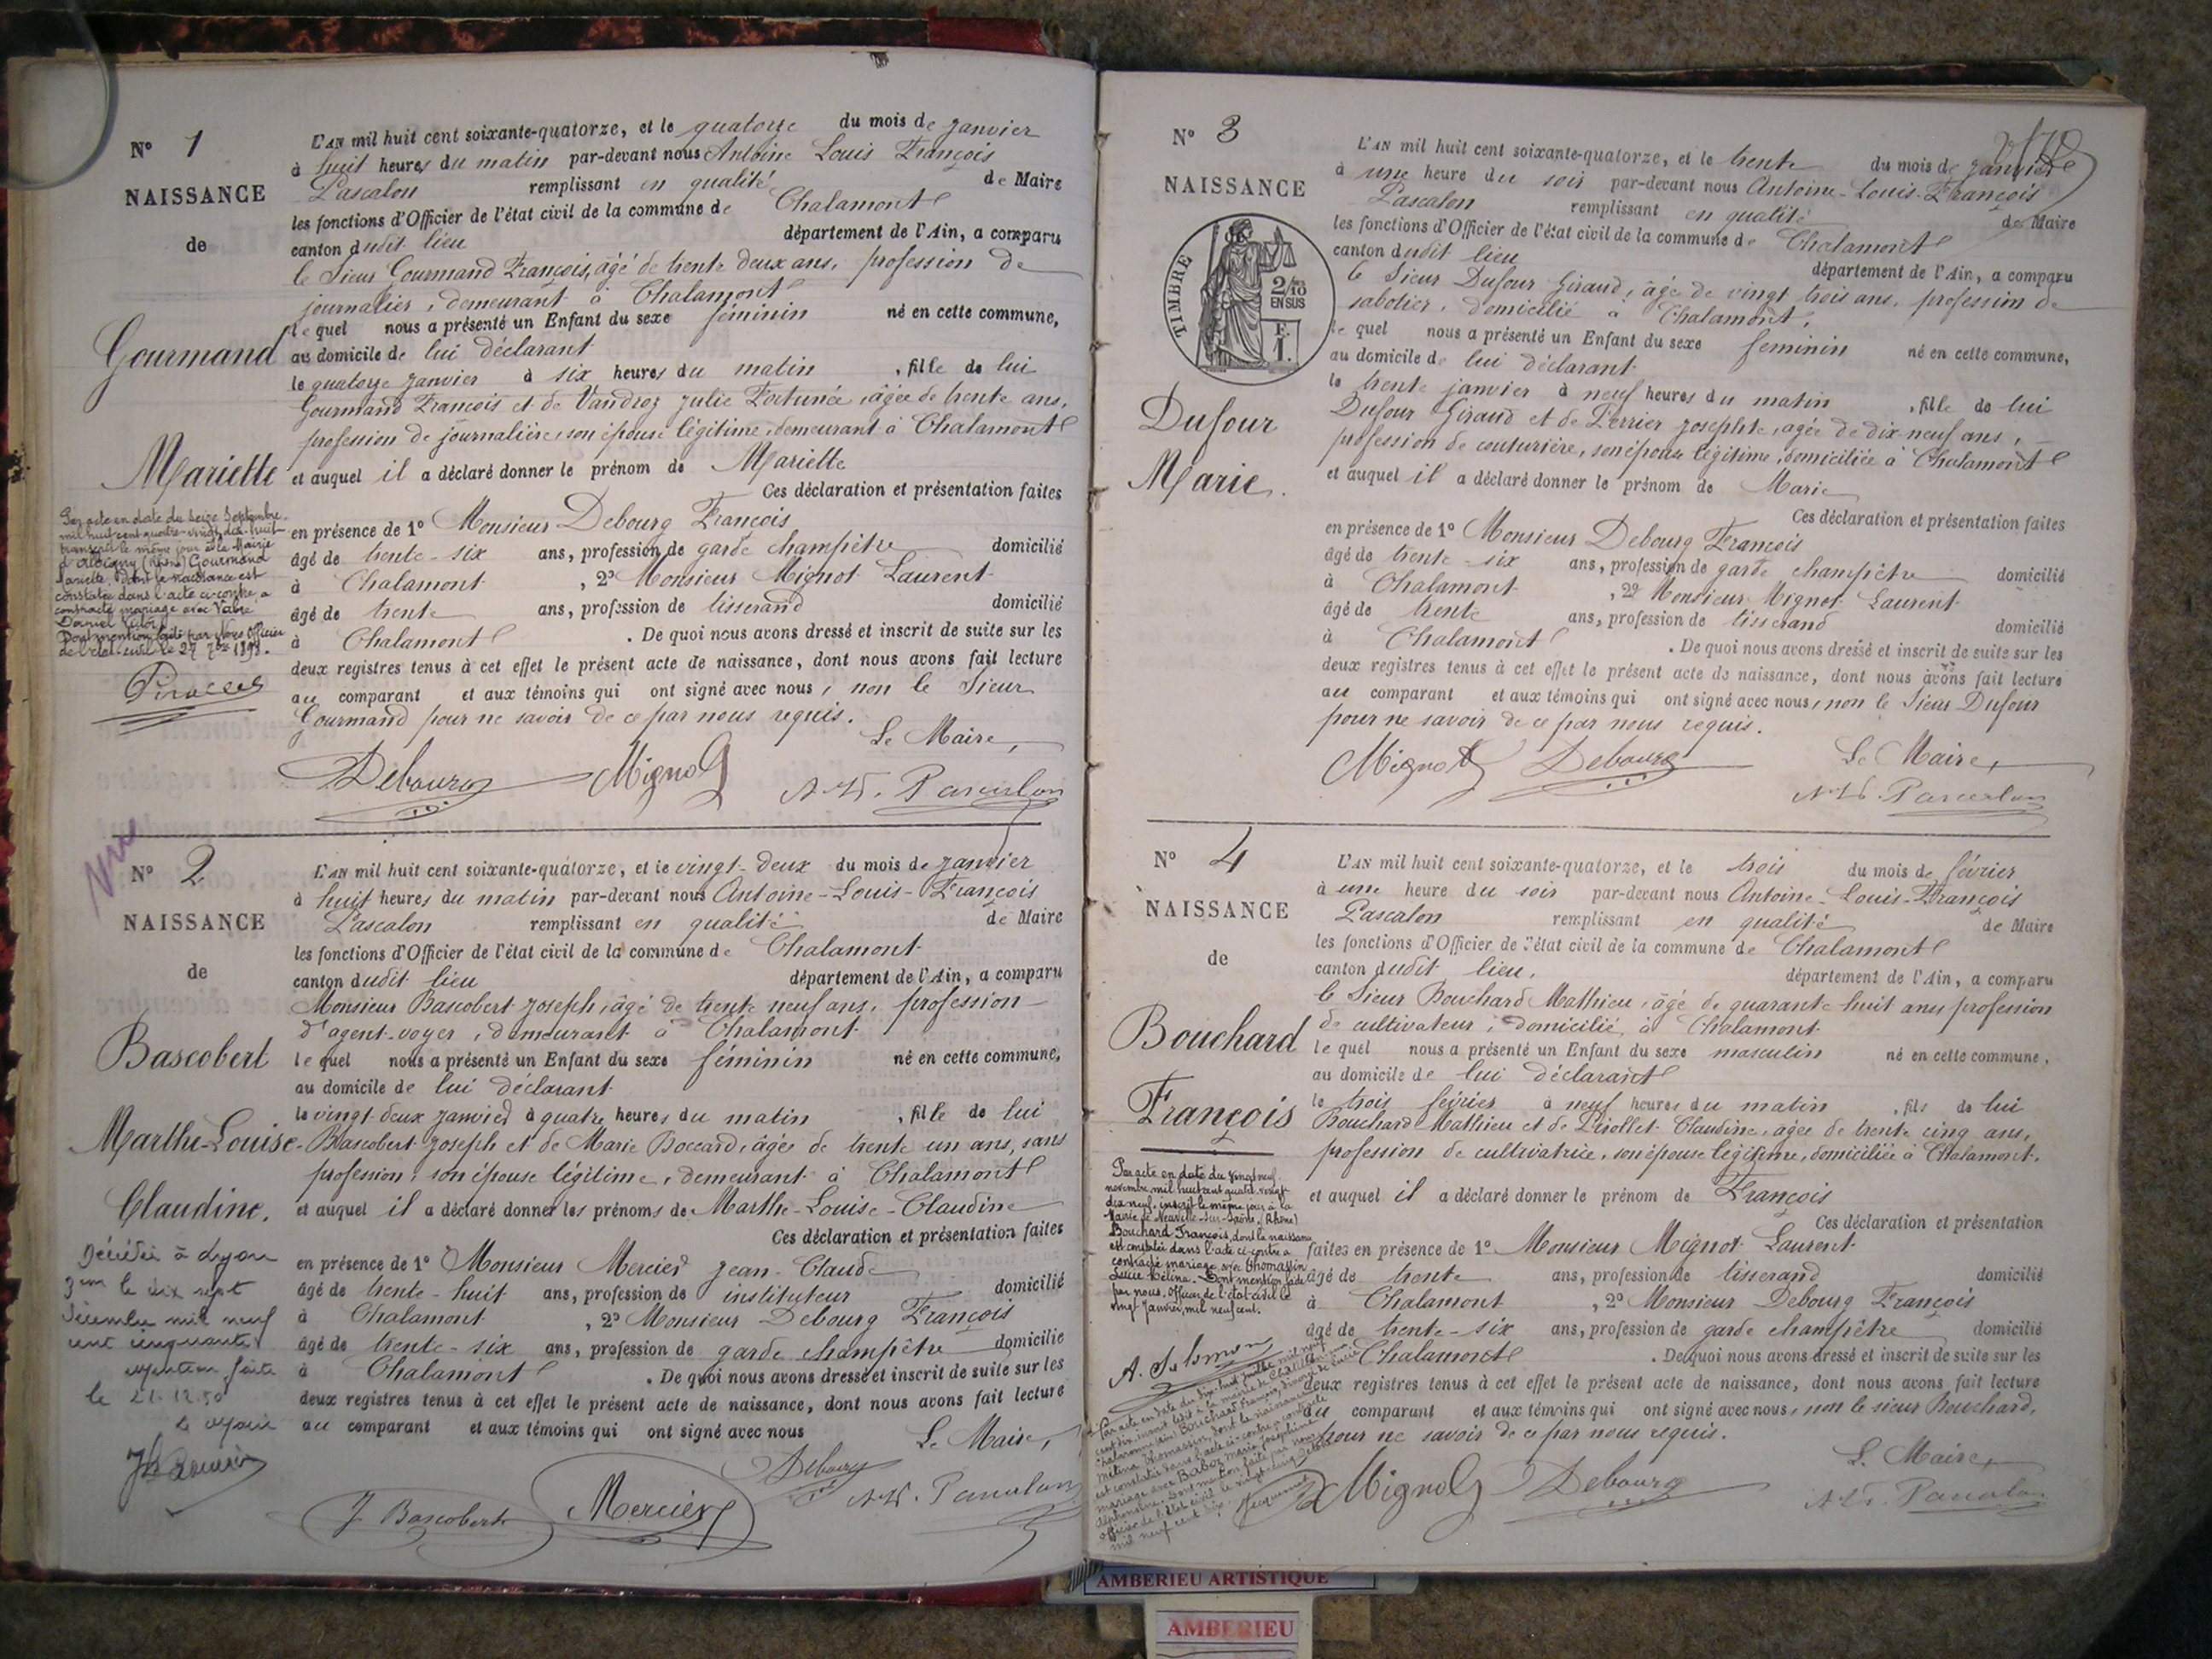 N° 1
NAISSANCE
de
Gourmand
Mariette
Par acte en date du seize Septembre
mil huit cent quatre-vingt dix-huit
transcrit le même jour à la Mairie
d'Albigny (Rhône) Gourmand
Mariette, dont la naissance est
constatée dans l'acte ci-contre, a
contracté mariage avec Vabre
Daniel Victor
Dont mention faite par Nous Officier
de l'état-civil le 27 7bre 1898.
L'AN mil huit cent soixante-quatorze, et le quatorze du mois de janvier
à huit heures du matin par-devant nous Antoine Louis François
Pascalon remplissant en qualité de Maire
les fonctions d'Officier de l'état civil de la commune de Chalamont
canton dudit lieu département de l'Ain, a comparu
le Sieur Gourmand François, âgé de trente deux ans, profession de
journalier, demeurant à Chalamont
lequel nous a présenté un Enfant du sexe féminin né en cette commune,
au domicile de lui déclarant
le quatorze janvier à six heures du matin, fille de lui
Gourmand François et de Vandroz Julie Fortunée, âgée de trente ans,
profession de journalière, son épouse légitime, demeurant à Chalamont
et auquel il a déclaré donner le prénom de Mariette
Ces déclaration et présentation faites
en présence de 1° Monsieur Debourg François
âgé de trente-six ans, profession de garde champêtre domicilié
à Chalamont, 2° Monsieur Mignot Laurent
âgé de trente ans, profession de tisserand domicilié
à Chalamont. De quoi nous avons dressé et inscrit de suite sur les
deux registres tenus à cet effet le présent acte de naissance, dont nous avons fait lecture
au comparant et aux témoins qui ont signé avec nous, non le Sieur
Gourmand pour ne savoir de ce par nous requis.
Le Maire,
Debourg Mignot A. L. F. Pascalon
Vu
N° 2
NAISSANCE
de
Bascobert
Marthe-Louise-
Claudine.
Décédée à Lyon
3em le dix sept
décembre mil neuf
cent cinquante
mention faite
le 21.12.50
L'AN mil huit cent soixante-quatorze, et le vingt-deux du mois de janvier
à huit heures du matin par-devant nous Antoine-Louis-François
Pascalon remplissant en qualité de Maire
les fonctions d'Officier de l'état civil de la commune de Chalamont
canton dudit lieu département de l'Ain, a comparu
Monsieur Bascobert Joseph, âgé de trente neuf ans, profession
d'agent-voyer, demeurant à Chalamont
lequel nous a présenté un Enfant du sexe féminin né en cette commune,
au domicile de lui déclarant
le vingt-deux janvier à quatre heures du matin, fille de lui
Bascobert Joseph et de Marie Boccard, âgée de trente un ans, sans
profession, son épouse légitime, demeurant à Chalamont
et auquel il a déclaré donner les prénoms de Marthe-Louise-Claudine
Ces déclaration et présentation faites
en présence de 1° Monsieur Mercier Jean-Claude
âgé de trente-huit ans, profession de instituteur domicilié
à Chalamont, 2° Monsieur Debourg François
âgé de trente-six ans, profession de garde champêtre domicilié
à Chalamont. De quoi nous avons dressé et inscrit de suite sur les
deux registres tenus à cet effet le présent acte de naissance, dont nous avons fait lecture
au comparant et aux témoins qui ont signé avec nous
Le Maire,
J. Bascobert Mercier Debourg A. L. F. Pascalon
N° 3
NAISSANCE
TIMBRE
2/10
EN SUS
F.
1.
Dufour
Marie.
L'AN mil huit cent soixante-quatorze, et le trente du mois de janvier
à une heure du soir par-devant nous Antoine-Louis-François
Pascalon remplissant en qualité de Maire
les fonctions d'Officier de l'état civil de la commune de Chalamont
canton dudit lieu département de l'Ain, a comparu
le Sieur Dufour Giraud, âgé de vingt trois ans, profession de
sabotier, domicilié à Chalamont,
lequel nous a présenté un Enfant du sexe féminin né en cette commune,
au domicile de lui déclarant
le trente janvier à neuf heures du matin, fille de lui
Dufour Giraud et de Perrier Josephte, âgée de dix-neuf ans,
profession de couturière, son épouse légitime, domiciliée à Chalamont
et auquel il a déclaré donner le prénom de Marie
Ces déclaration et présentation faites
en présence de 1° Monsieur Debourg François
âgé de trente-six ans, profession de garde champêtre domicilié
à Chalamont, 2° Monsieur Mignot Laurent
âgé de trente ans, profession de tisserand domicilié
à Chalamont. De quoi nous avons dressé et inscrit de suite sur les
deux registres tenus à cet effet le présent acte de naissance, dont nous avons fait lecture
au comparant et aux témoins qui ont signé avec nous, non le Sieur Dufour
pour ne savoir de ce par nous requis.
Mignot Debourg Le Maire,
A. L. F. Pascalon
N° 4
NAISSANCE
de
Bouchard
François
Par acte en date du vingt neuf
novembre mil huit cent quatre-vingt
dix neuf, inscrit le même jour à la
Mairie de Neuville-sur-Saône, (Rhône)
Bouchard François, dont la naissance
est constatée dans l'acte ci-contre a
contracté mariage avec Thomassin
Lucie Méline. Dont mention faite
par nous, officier de l'état civil le
vingt Janvier, mil neuf cent.
A. Salomon
Par acte en date du dix-huit juillet mil neuf
cent dix, inscrit le dit à la mairie de Châtillon-sur-
Chalaronne (Ain) Bouchard François, divorcé de Lucie
Mélina Thomassin, dont la naissance
est constatée dans l'acte ci-contre, a contracté
mariage avec Baboz Marie Joséphine
Alphonsine. Dont mention faite par nous
officier de l'état civil le vingt-cinq
mil neuf cent dix.
L'AN mil huit cent soixante-quatorze, et le trois du mois de février
à une heure du soir par-devant nous Antoine-Louis-François
Pascalon remplissant en qualité de Maire
les fonctions d'Officier de l'état civil de la commune de Chalamont
canton dudit lieu. département de l'Ain, a comparu
le Sieur Bouchard Mathieu, âgé de quarante-huit ans, profession
de cultivateur, domicilié à Chalamont
lequel nous a présenté un Enfant du sexe masculin né en cette commune,
au domicile de lui déclarant
le trois février à neuf heures du matin, fils de lui
Bouchard Mathieu et de Priollet Claudine, âgée de trente cinq ans,
profession de cultivatrice, son épouse légitime, domiciliée à Chalamont.
et auquel il a déclaré donner le prénom de François
Ces déclaration et présentation
faites en présence de 1° Monsieur Mignot Laurent
âgé de trente ans, profession de tisserand domicilié
à Chalamont, 2° Monsieur Debourg François
âgé de trente-six ans, profession de garde champêtre domicilié
à Chalamont. De quoi nous avons dressé et inscrit de suite sur les
deux registres tenus à cet effet le présent acte de naissance, dont nous avons fait lecture
au comparant et aux témoins qui ont signé avec nous, non le sieur Bouchard,
pour ne savoir de ce par nous requis.
Le Maire,
Mignot Debourg A. L. F. Pascalon
AMBERIEU ARTISTIQUE
AMBERIEU